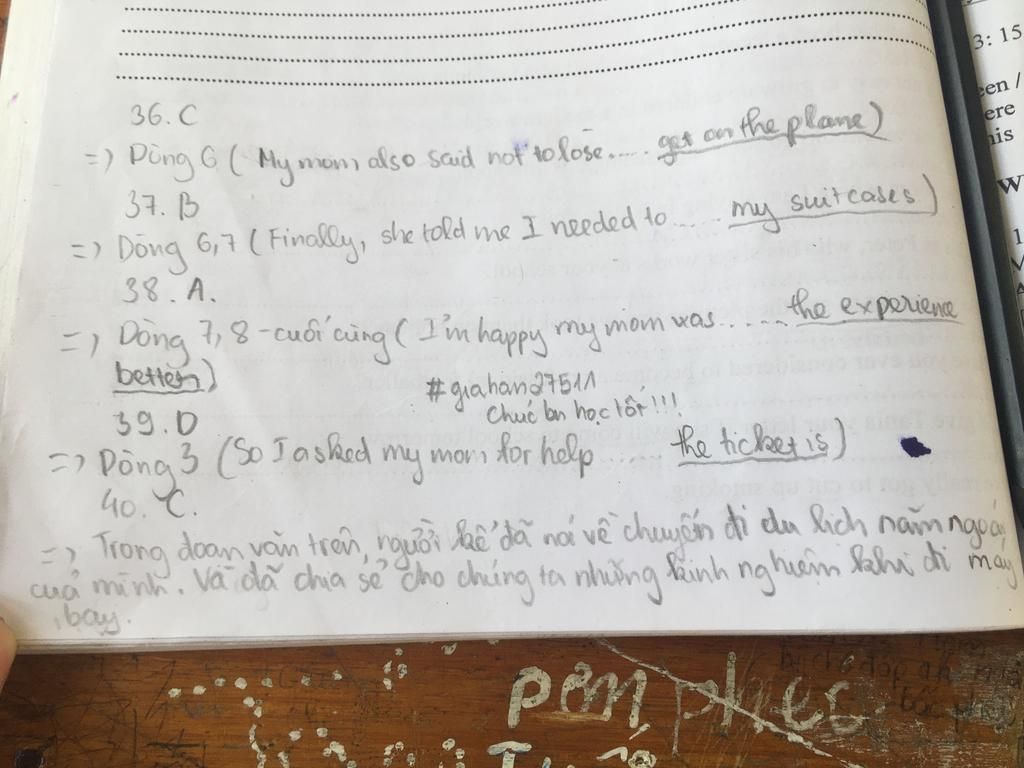 36. C
=> Dòng 6 ( My mom also said not to lose..... get on the plane)
37. B
=> Dòng 6,7 ( Finally, she told me I needed to ..... my suitcases)
38. A.
=> Dòng 7,8 - cuối cùng ( I'm happy my mom was ...... the experience
better)
#giahan27511
Chúc bn học tốt!!!
39. D
=> Dòng 3 (So I asked my mom for help ..... the ticket is)
40. C.
=> Trong đoạn văn trên, người kể đã nói về chuyến đi du lịch năm ngoái
của mình. Và đã chia sẻ cho chúng ta những kinh nghiệm khi đi máy
bay.
3: 15
een /
ere
his
pen